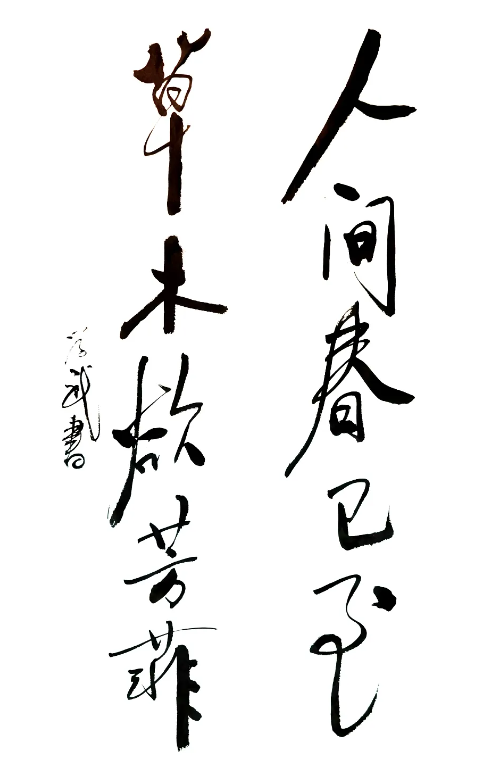 人间春已至
草木欲芳菲
学武書